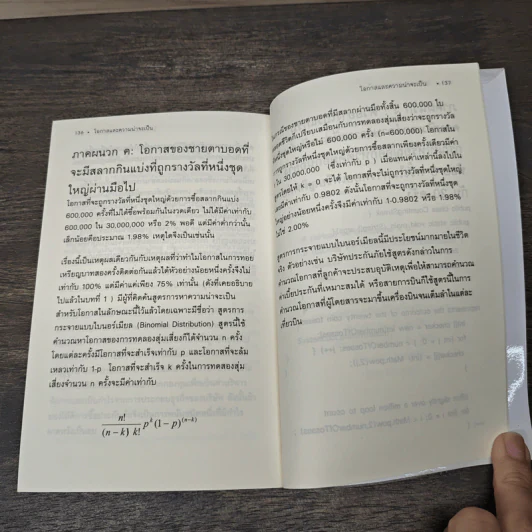 136 • โอกาสและความน่าจะเป็น
ภาคผนวก ค: โอกาสของชายตาบอดที่
จะมีสลากกินแบ่งที่ถูกรางวัลที่หนึ่งชุด
ใหญ่ผ่านมือไป
โอกาสที่จะถูกรางวัลที่หนึ่งชุดใหญ่ด้วยการซื้อสลากกินแบ่ง
600,000 ครั้งที่ไม่ได้ซื้อพร้อมกันในงวดเดียว ไม่ได้มีค่าเท่ากับ
600,000 ใน 30,000,000 หรือ 2% พอดี แต่มีค่าต่ำกว่านั้น
เล็กน้อยคือประมาณ 1.98% เหตุใดจึงเป็นเช่นนั้น
เรื่องนี้เป็นเหตุผลเดียวกันกับเหตุผลที่ว่าทำไมโอกาสในการทอย
เหรียญบาทสองครั้งติดต่อกันแล้วได้หัวอย่างน้อยหนึ่งครั้งจึงไม่
เท่ากับ 100% แต่มีค่าเพียง 75% เท่านั้น (ดังที่เคยอธิบาย
ไปแล้วในบทที่ 1 ) มีผู้ที่คิดค้นสูตรการหาความน่าจะเป็น
สำหรับโอกาสในลักษณะนี้ไว้แล้วโดยเฉพาะมีชื่อว่า สูตรการ
กระจายแบบไบนอร์เมียล (Binomial Distribution) สูตรนี้ใช้
คำนวณหาโอกาสของการทดลองสุ่มเสี่ยงก็ได้จำนวน n ครั้ง
โดยแต่ละครั้งมีโอกาสที่จะสำเร็จเท่ากับ p และโอกาสที่จะล้ม
เหลวเท่ากับ 1-p โอกาสที่จะสำเร็จ k ครั้งในการทดลองสุ่ม
เสี่ยงจำนวน n ครั้งจะมีค่าเท่ากับ
n! / (n−k)! k! p^k (1−p)^(n−k)
โอกาสและความน่าจะเป็น • 137
กรณีของชายตาบอดที่มีสลากผ่านมือทั้งสิ้น 600,000 ใบ
ชีวิตก็เปรียบเสมือนกับการทดลองสุ่มเสี่ยงว่าจะถูกรางวัล
ชุดใหญ่หรือไม่ 600,000 ครั้ง (n=600,000) โอกาสใน
ถูกรางวัลที่หนึ่งชุดใหญ่ด้วยการซื้อสลากเพียงครั้งเดียวมีค่า
ใน 30,000,000 (ซึ่งเท่ากับ p ) เมื่อแทนค่าเหล่านี้ลงไปใน
โดยให้ k = 0 จะได้ โอกาสที่จะไม่ถูกรางวัลที่หนึ่งชุดใหญ่
มีค่าเท่ากับ 0.9802 ดังนั้นโอกาสที่จะถูกรางวัลที่หนึ่งชุด
ใหญ่อย่างน้อยหนึ่งครั้งจึงมีค่าเท่ากับ 1-0.9802 หรือ 1.98%
ไม่ใช่ 2.00%
สูตรการกระจายแบบไบนอร์เมียลนี้มีประโยชน์มากมายในชีวิต
จริง ตัวอย่างเช่น บริษัทประกันภัยใช้สูตรดังกล่าวในการ
คำนวณโอกาสที่ลูกค้าจะประสบอุบัติเหตุเพื่อให้สามารถคำนวณ
ค่าเบี้ยประกันที่เหมาะสมได้ หรือสายการบินก็ใช้สูตรนี้ในการ
คำนวณโอกาสที่ผู้โดยสารจะมาขึ้นเครื่องบินจนเต็มลำในแต่ละ
เที่ยวบิน